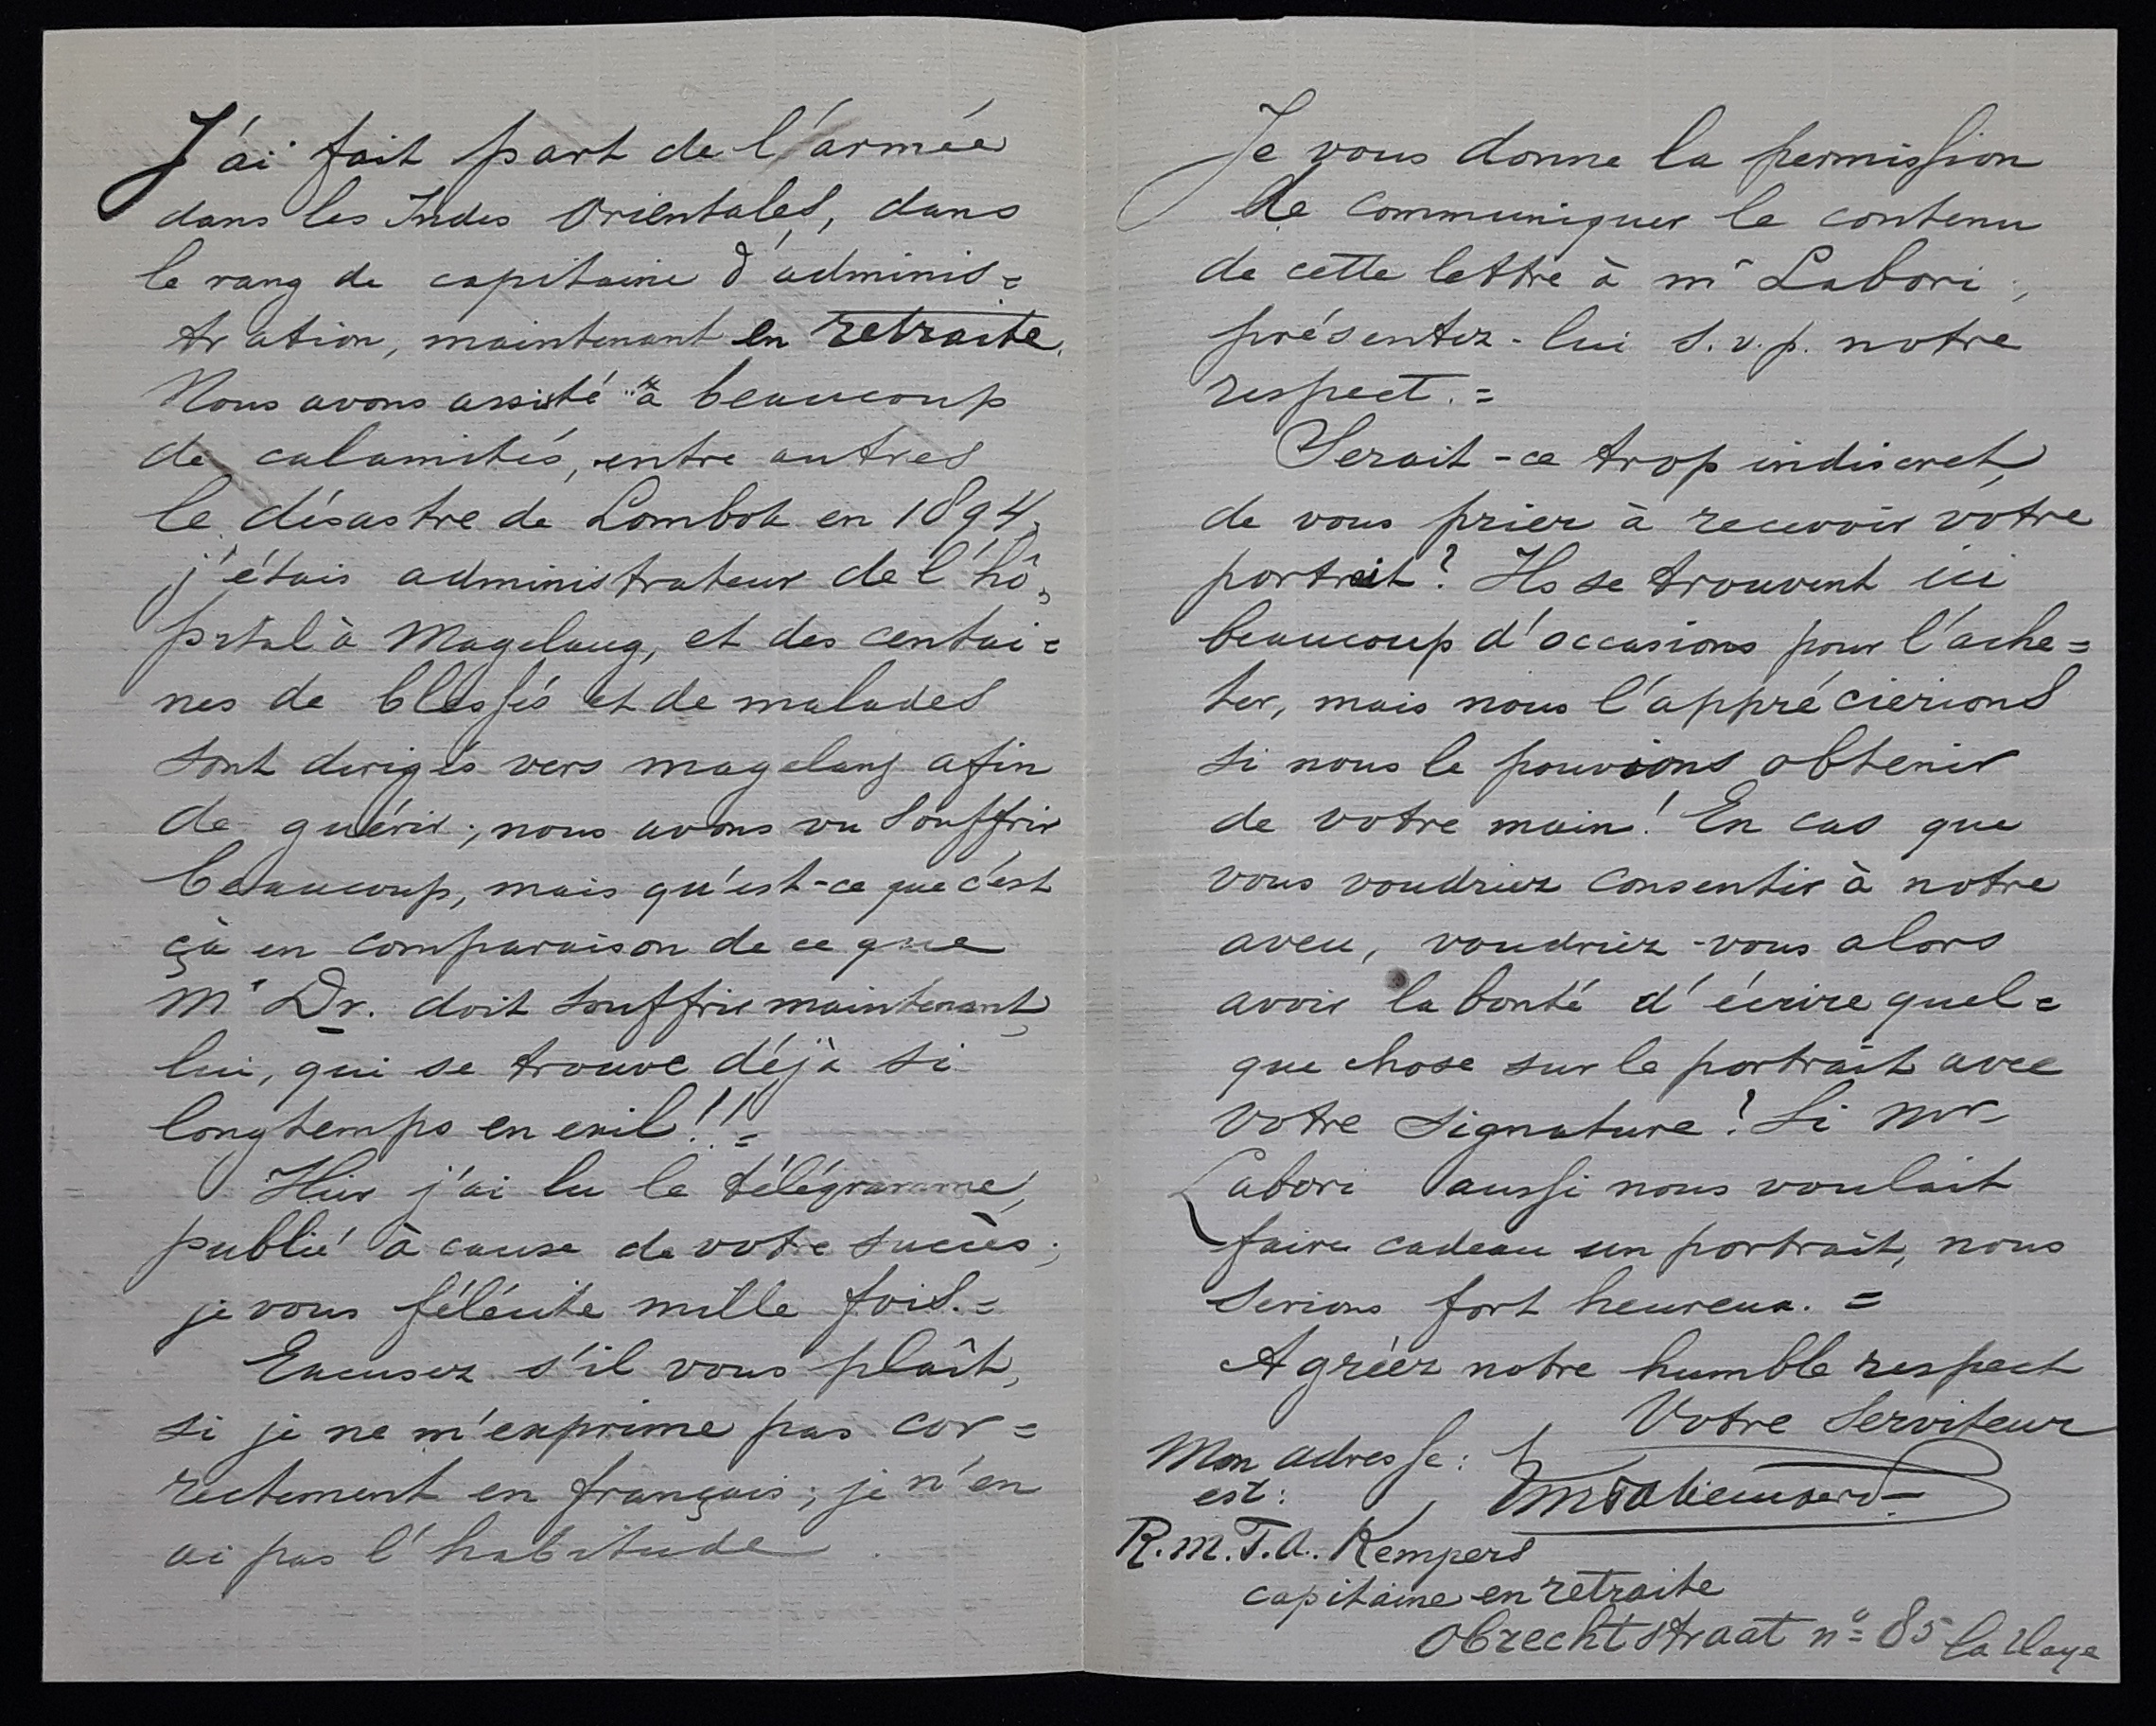 J'ai fait part de l'armée
dans les Indes Orientales, dans
le rang de capitaine d'adminis=
tration, maintenant en retraite.
Nous avons assisté à beaucoup
de calamités, entre autres
le désastre de Lombok en 1894,
j'étais administrateur de l'hô=
pital à Magelang, et des centai=
nes de blessés et de malades
sont dirigés vers Magelang afin
de guérir; nous avons vu souffrir
beaucoup, mais qu'est-ce que c'est
çà en comparaison de ce que
Mr Dr. doit souffrir maintenant,
lui, qui se trouve déjà si
longtemps en exil!! =
Hier j'ai lu le télégramme,
publié à cause de votre succès;
je vous félécite mille fois. =
Excusez s'il vous plaît,
si je ne m'exprime pas cor=
rectement en français; je n'en
ai pas l'habitude.
Je vous donne la permission
de communiquer le contenu
de cette lettre à mr Labori;
présentez-lui s.v.p. notre
respect. =
Serait-ce trop indiscret,
de vous prier à recevoir votre
portrait? Ils se trouvent ici
beaucoup d'occasions pour l'ache=
ter, mais nous l'apprécierions
si nous le pouvions obtenir
de votre main! En cas que
vous voudriez consentir à notre
aveu, voudriez-vous alors
avoir la bonté d'écrire quel=
que chose sur le portrait avec
votre signature? Si Mr
Labori aussi nous voulait
faire cadeau un portrait, nous
serions fort heureux. =
Agréez notre humble respect
Votre Serviteur
Mon adresse:
est:
R.M.T.A. Kempers
capitaine en retraite
Obrechtstraat no 85 la Haye